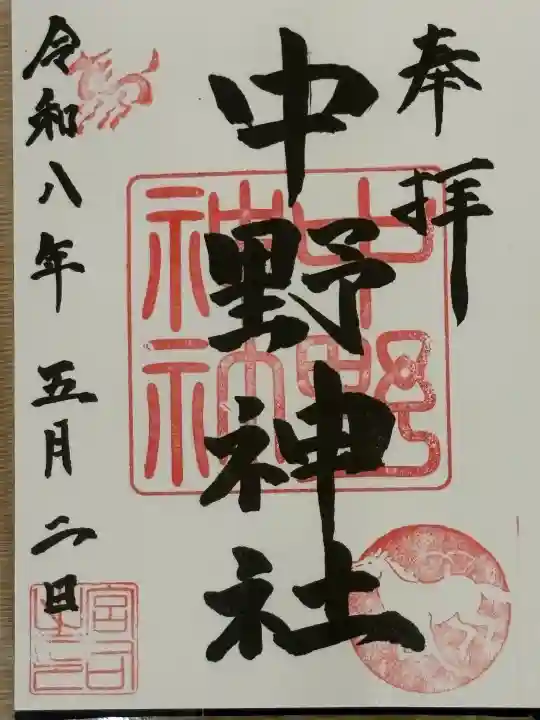 奉拝
中野神社
令和八年五月二日
中野神社
宮司之印